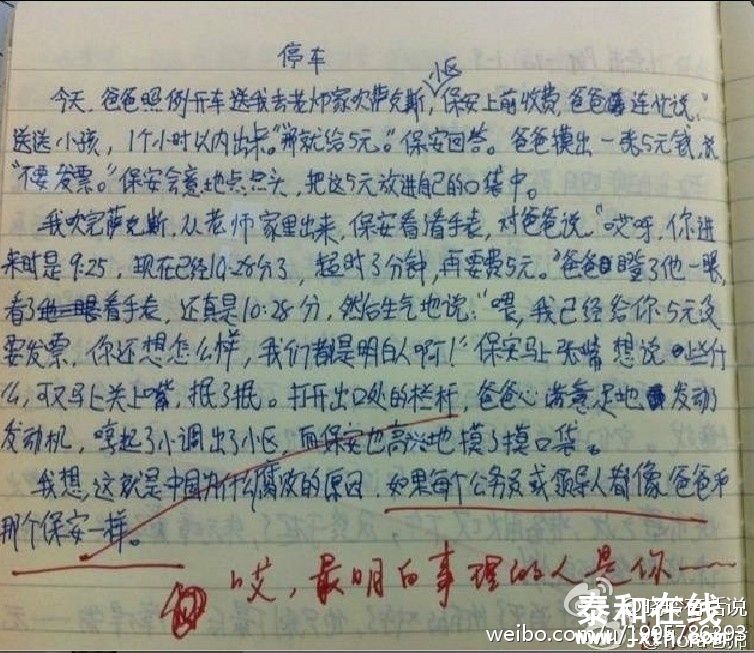 停车
小区
今天,爸爸照例开车送我去老师家吹萨克斯,保安上前收费,爸爸连忙说,"
送送小孩,1个小时以内出来。""那就给5元。"保安回答。爸爸摸出一张5元钱,说
"不要发票。"保安会意地点点头,把这5元放进自己的口袋中。
我吹完萨克斯,从老师家里出来,保安看着手表,对爸爸说,"哎呀,你进
来时是9:25,现在已经10:28分了,超时3分钟,再要费5元。"爸爸瞪了他一眼,
看了他一眼看手表,还真是10:28分,然后生气地说:"喂,我已经给你5元没
要发票,你还想怎么样,我们都是明白人啊!"保安马上张嘴想说些什
么,可又马上关上嘴,抿了抿。打开出口处的栏杆,爸爸心满意足地发动了
发动机,哼起了小调出了小区,而保安也高兴地摸了摸口袋。
我想,这就是中国为什么腐败的原因,如果每个公务员或领导人都像爸爸和
那个保安一样。
阅 哎,最明白事理的人是你——
泰和在线
weibo.com/u/1995786393